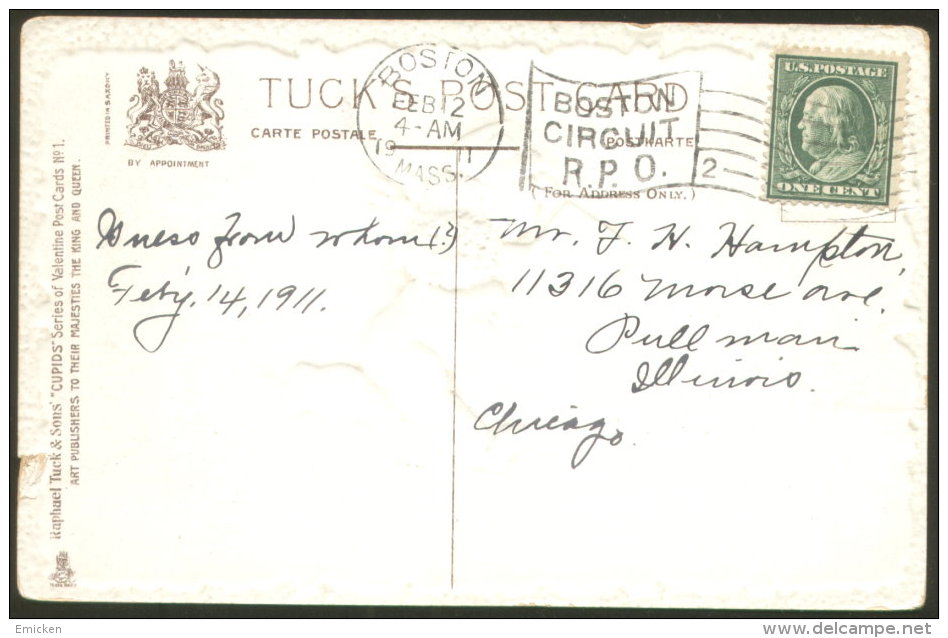 PRINTED IN SAXONY
BY APPOINTMENT
TUCK'S POST CARD
CARTE POSTALE
POSTKARTE
(FOR ADDRESS ONLY.)
BOSTON
FEB 12
4-AM
1911
MASS.
BOSTON
CIRCUIT
R.P.O.
2
U.S. POSTAGE
ONE CENT
Raphael Tuck & Sons' "CUPIDS" Series of Valentine Post Cards No 1.
ART PUBLISHERS TO THEIR MAJESTIES THE KING AND QUEEN.
Guess from whom (?)
Feb'y. 14, 1911.
Mr. F. H. Hampton,
11316 Morse ave.
Pullman
Illinois.
Chicago
Emicken
delcampe.net